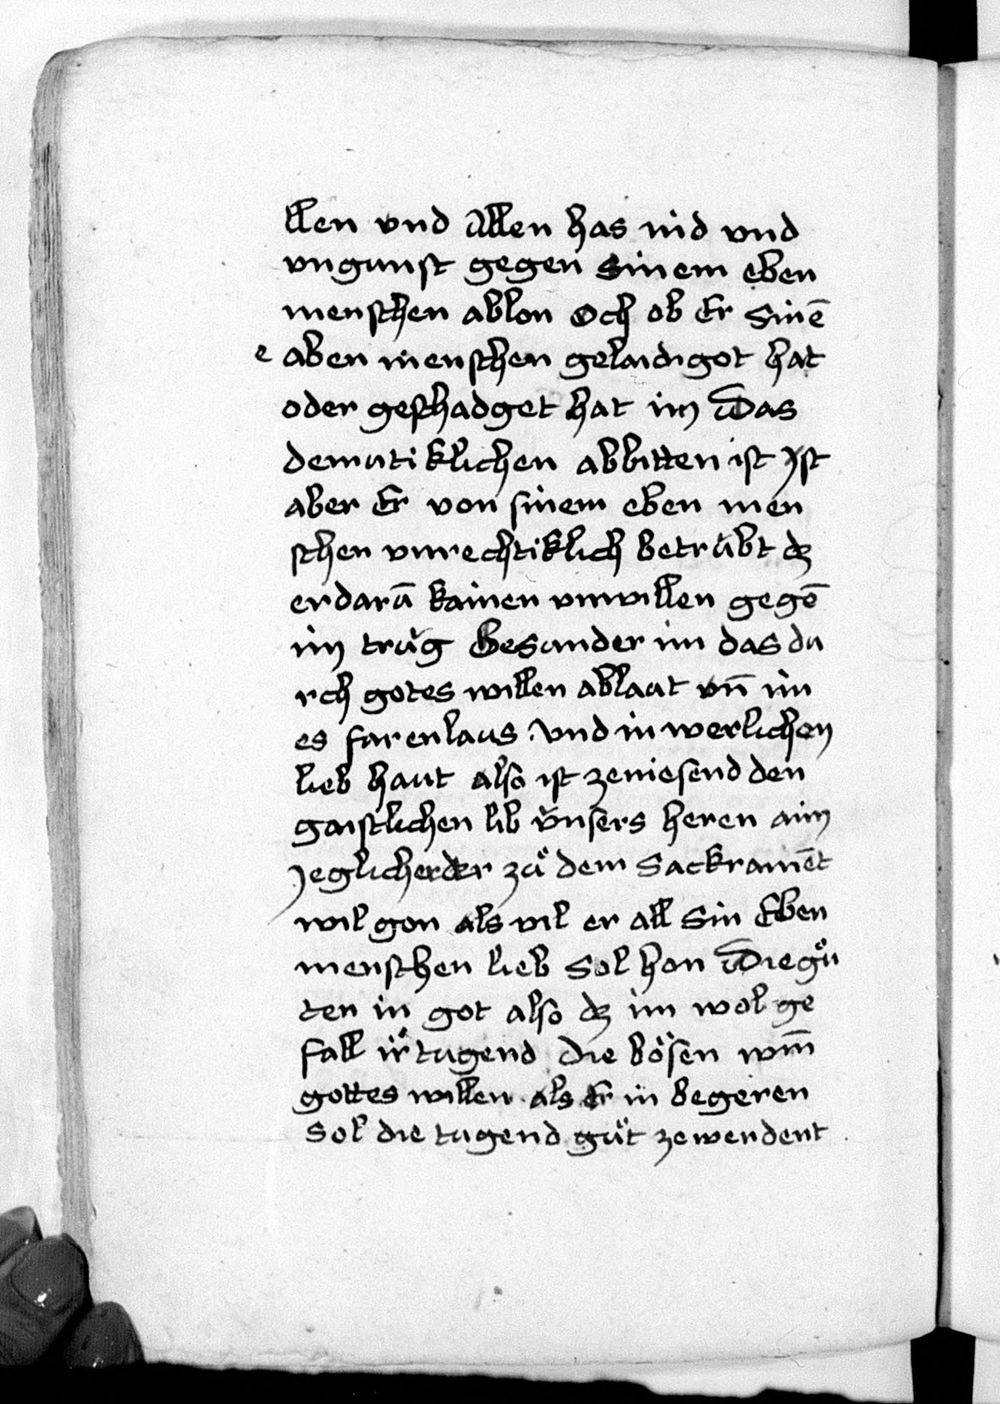 llen vnd Allen has nid vnd
vngunst gegen Sinem eben
menschen ablon Och ob Er Sinē
e aben menschen gelaidigot hat
oder geschadget hat im Das
demutiklichen abbitten ist Jst
aber Er von sinem eben men
schen vnrechtiklich betrŭbt dz
er darā kainen vnwillen gegē
im trŭg Besunder im das du
rch gotes willen ablaut vn̄ im
es faren laus vnd in werlichen
lieb haut also ist zeniesend den
gaistlichen lib v̈nsers heren aim
Jeglicher der zů dem Sackramēt
wil gon als vil er all Sin Eben
menschen lieb Sol hon Die gů
ten in got also dz im wol ge
fall ir tugend Die bösen vm̄
gottes willen als Er in begeren
Sol die tugend gůt zewendent